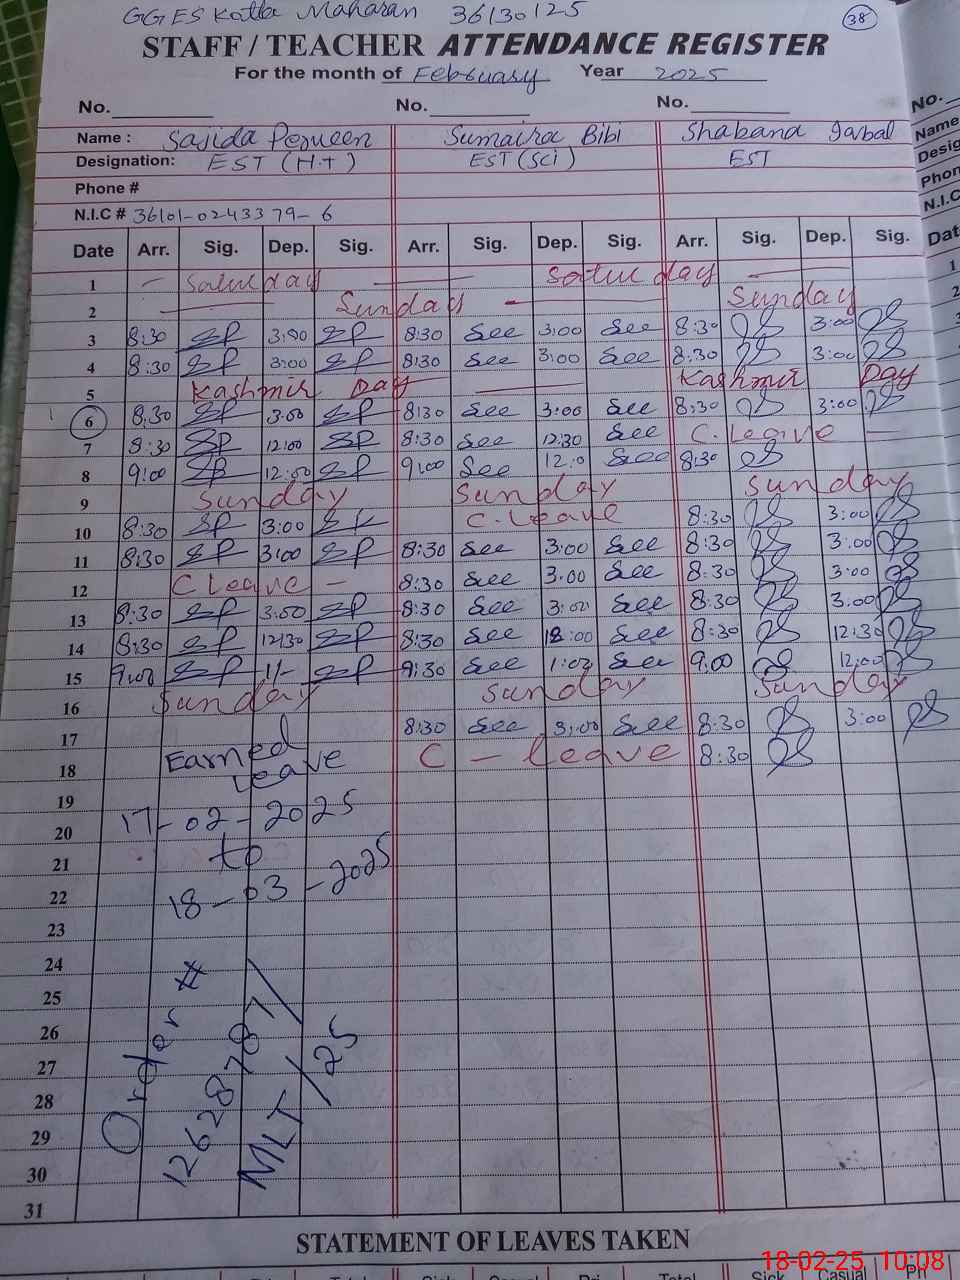 GGES Kotla Maharan 36130125
38
STAFF / TEACHER ATTENDANCE REGISTER
For the month of February Year 2025
No. No. No. No.
Name : Sajida Perveen Sumaira Bibi Shabana Iqbal Name
Designation: EST (H.T) EST (Sci) EST Desig
Phone # Phon
N.I.C # 36101-0243379-6 N.I.C
Date Arr. Sig. Dep. Sig. Arr. Sig. Dep. Sig. Arr. Sig. Dep. Sig. Dat
1 - Saturday - Saturday - 1
2 - Sunday - Sunday 2
3 8:30 SP 3:00 SP 8:30 See 3:00 See 8:30 3:00 3
4 8:30 SP 3:00 SP 8:30 See 3:00 See 8:30 3:00
5 Kashmir Day - Kashmir Day
6 8:30 SP 3:00 SP 8:30 See 3:00 See 8:30 3:00
7 8:30 SP 12:00 SP 8:30 See 12:30 See C. Leave -
8 9:00 SP 12:00 SP 9:00 See 12:0 See 8:30
9 Sunday Sunday Sunday
10 8:30 SP 3:00 C. Leave 8:30 3:00
11 8:30 SP 3:00 SP 8:30 See 3:00 See 8:30 3:00
12 C Leave - 8:30 See 3.00 See 8:30 3:00
13 8:30 SP 3:00 SP 8:30 See 3:00 See 8:30 3.00
14 8:30 SP 12:30 SP 8:30 See 12:00 See 8:30 12:30
15 9:00 SP 11- SP 9:30 See 1:00 See 9:00 12:00
16 Sunday Sunday Sunday
17 8:30 See 3:00 See 8:30 3:00
18 Earned Leave C - Leave 8:30
19
20 17-02-2025
21 to
22 18-03-2025
23
24
25
26
27
28
29
30
31
Order #
12628787/
MLT/25
STATEMENT OF LEAVES TAKEN
Sick Casual
18-02-25 10:08